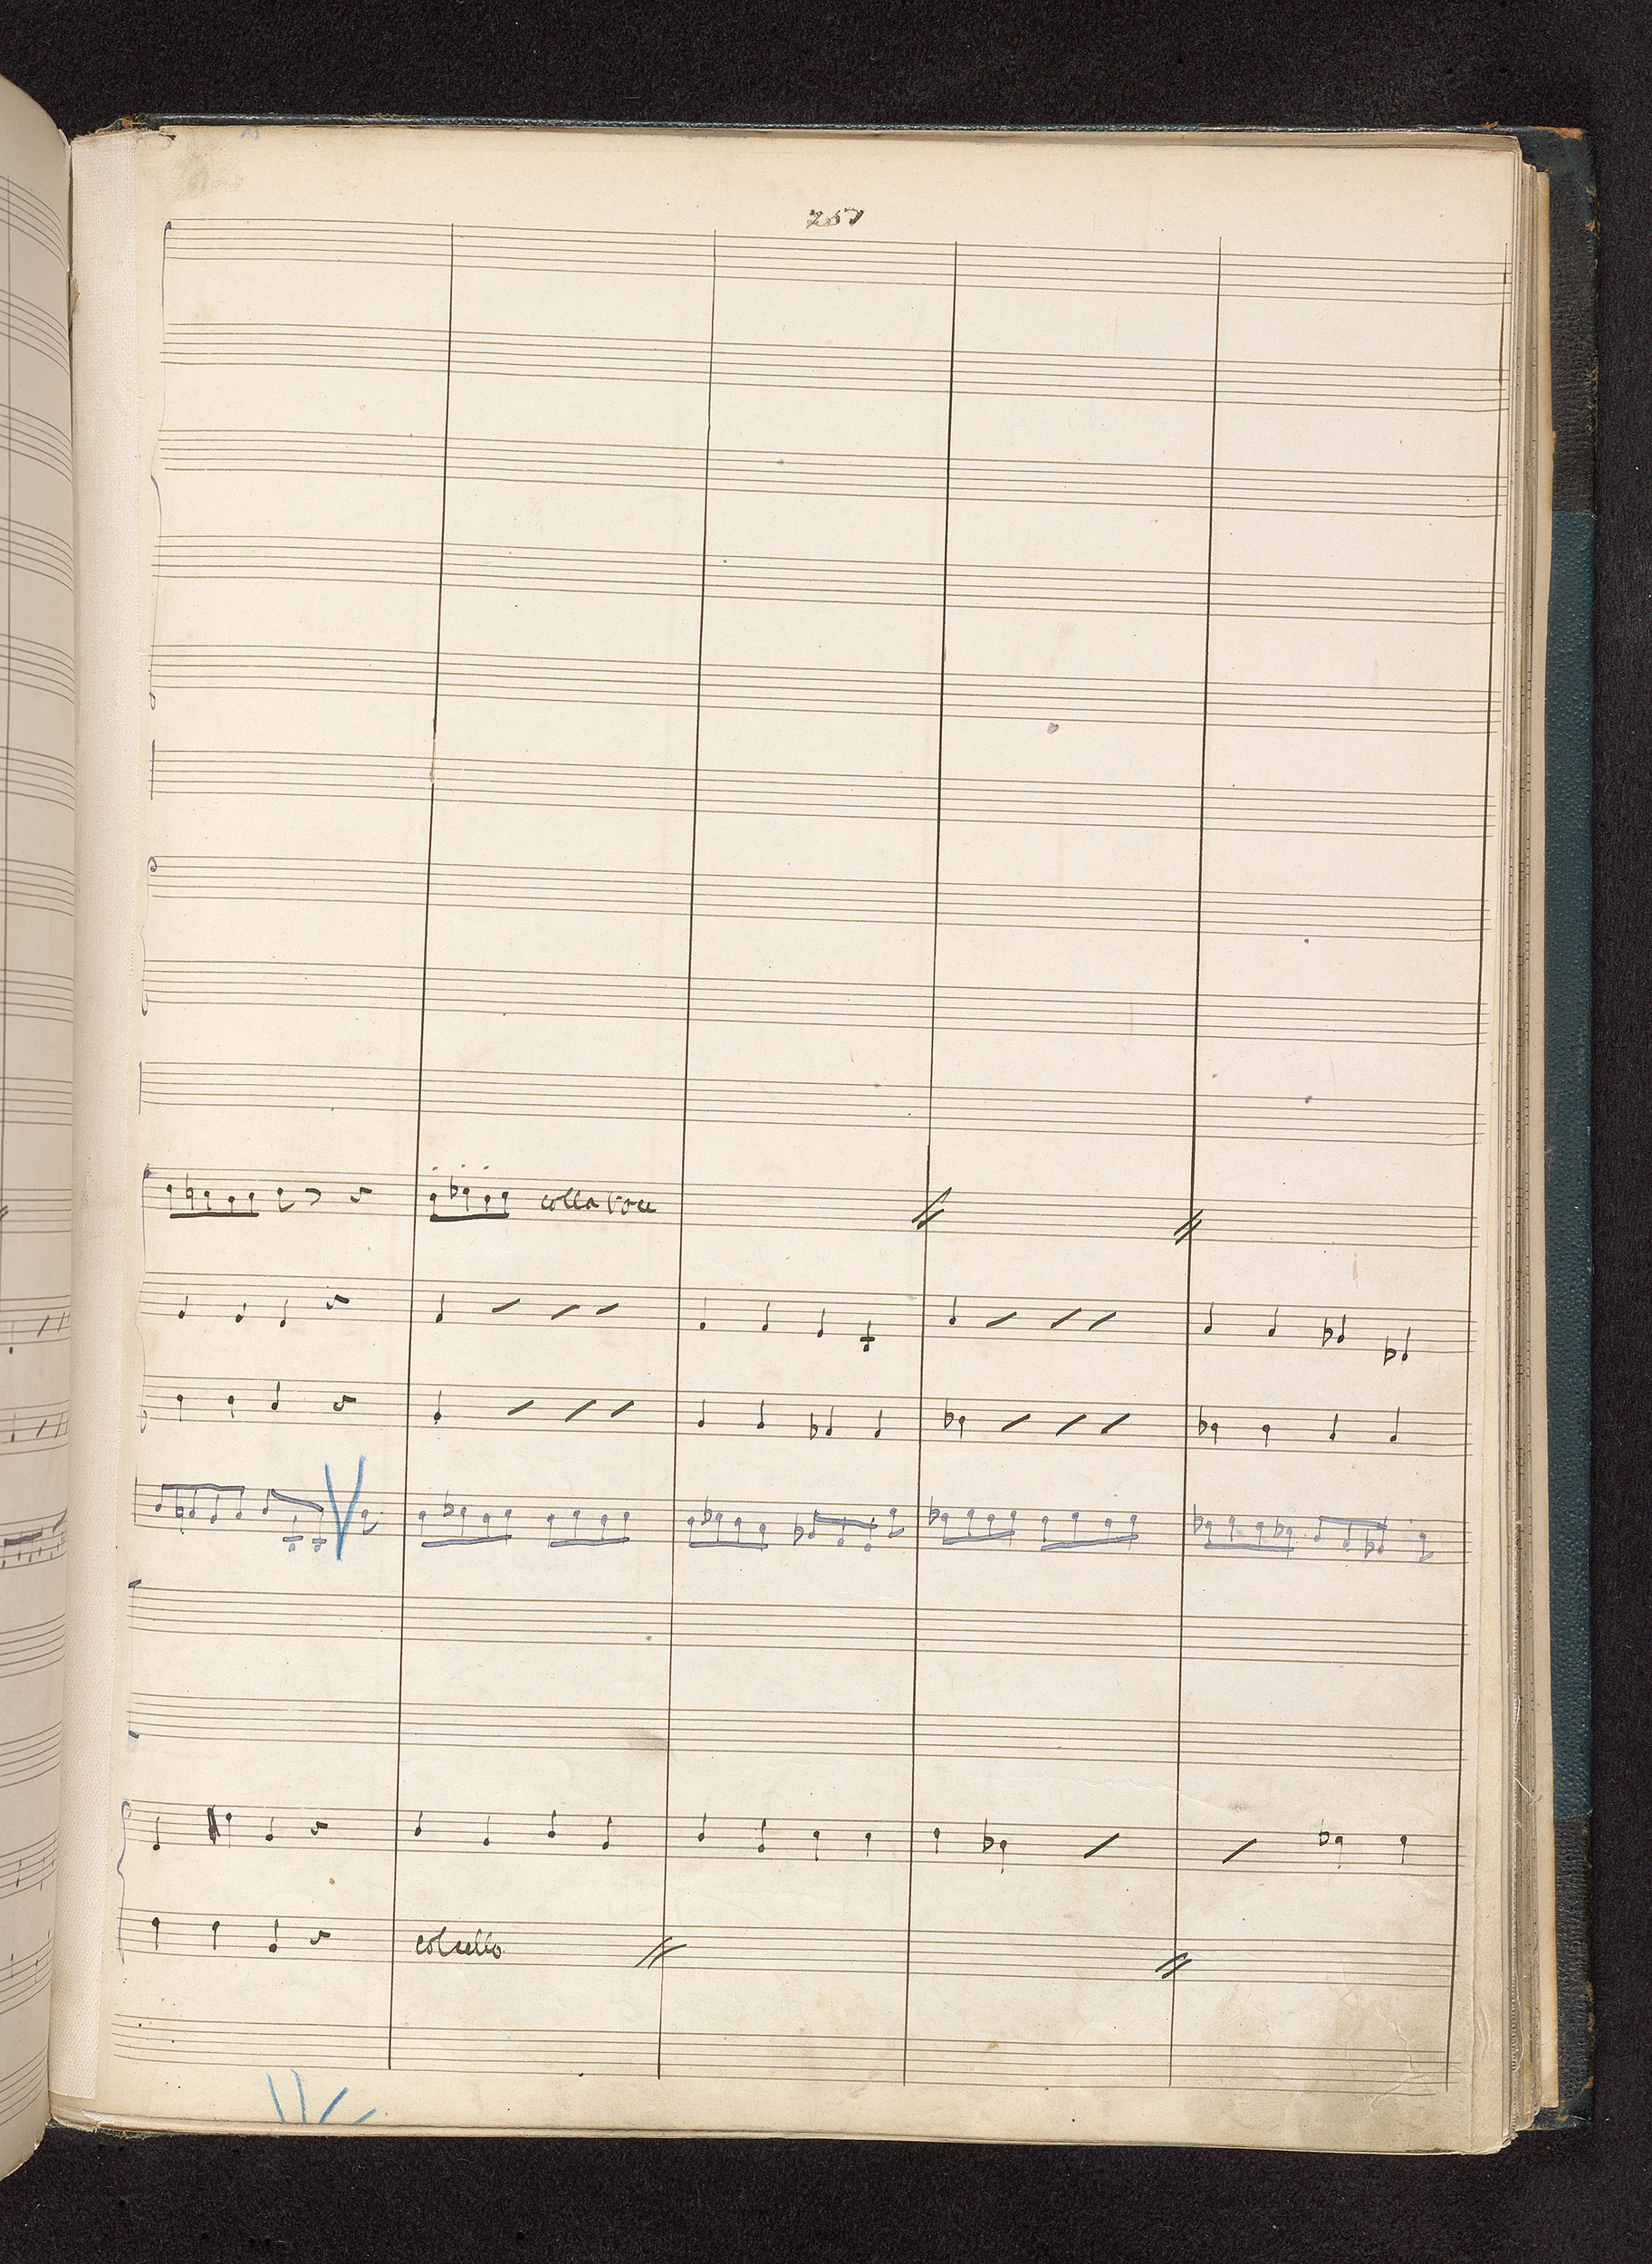 257
colla voce
colcello